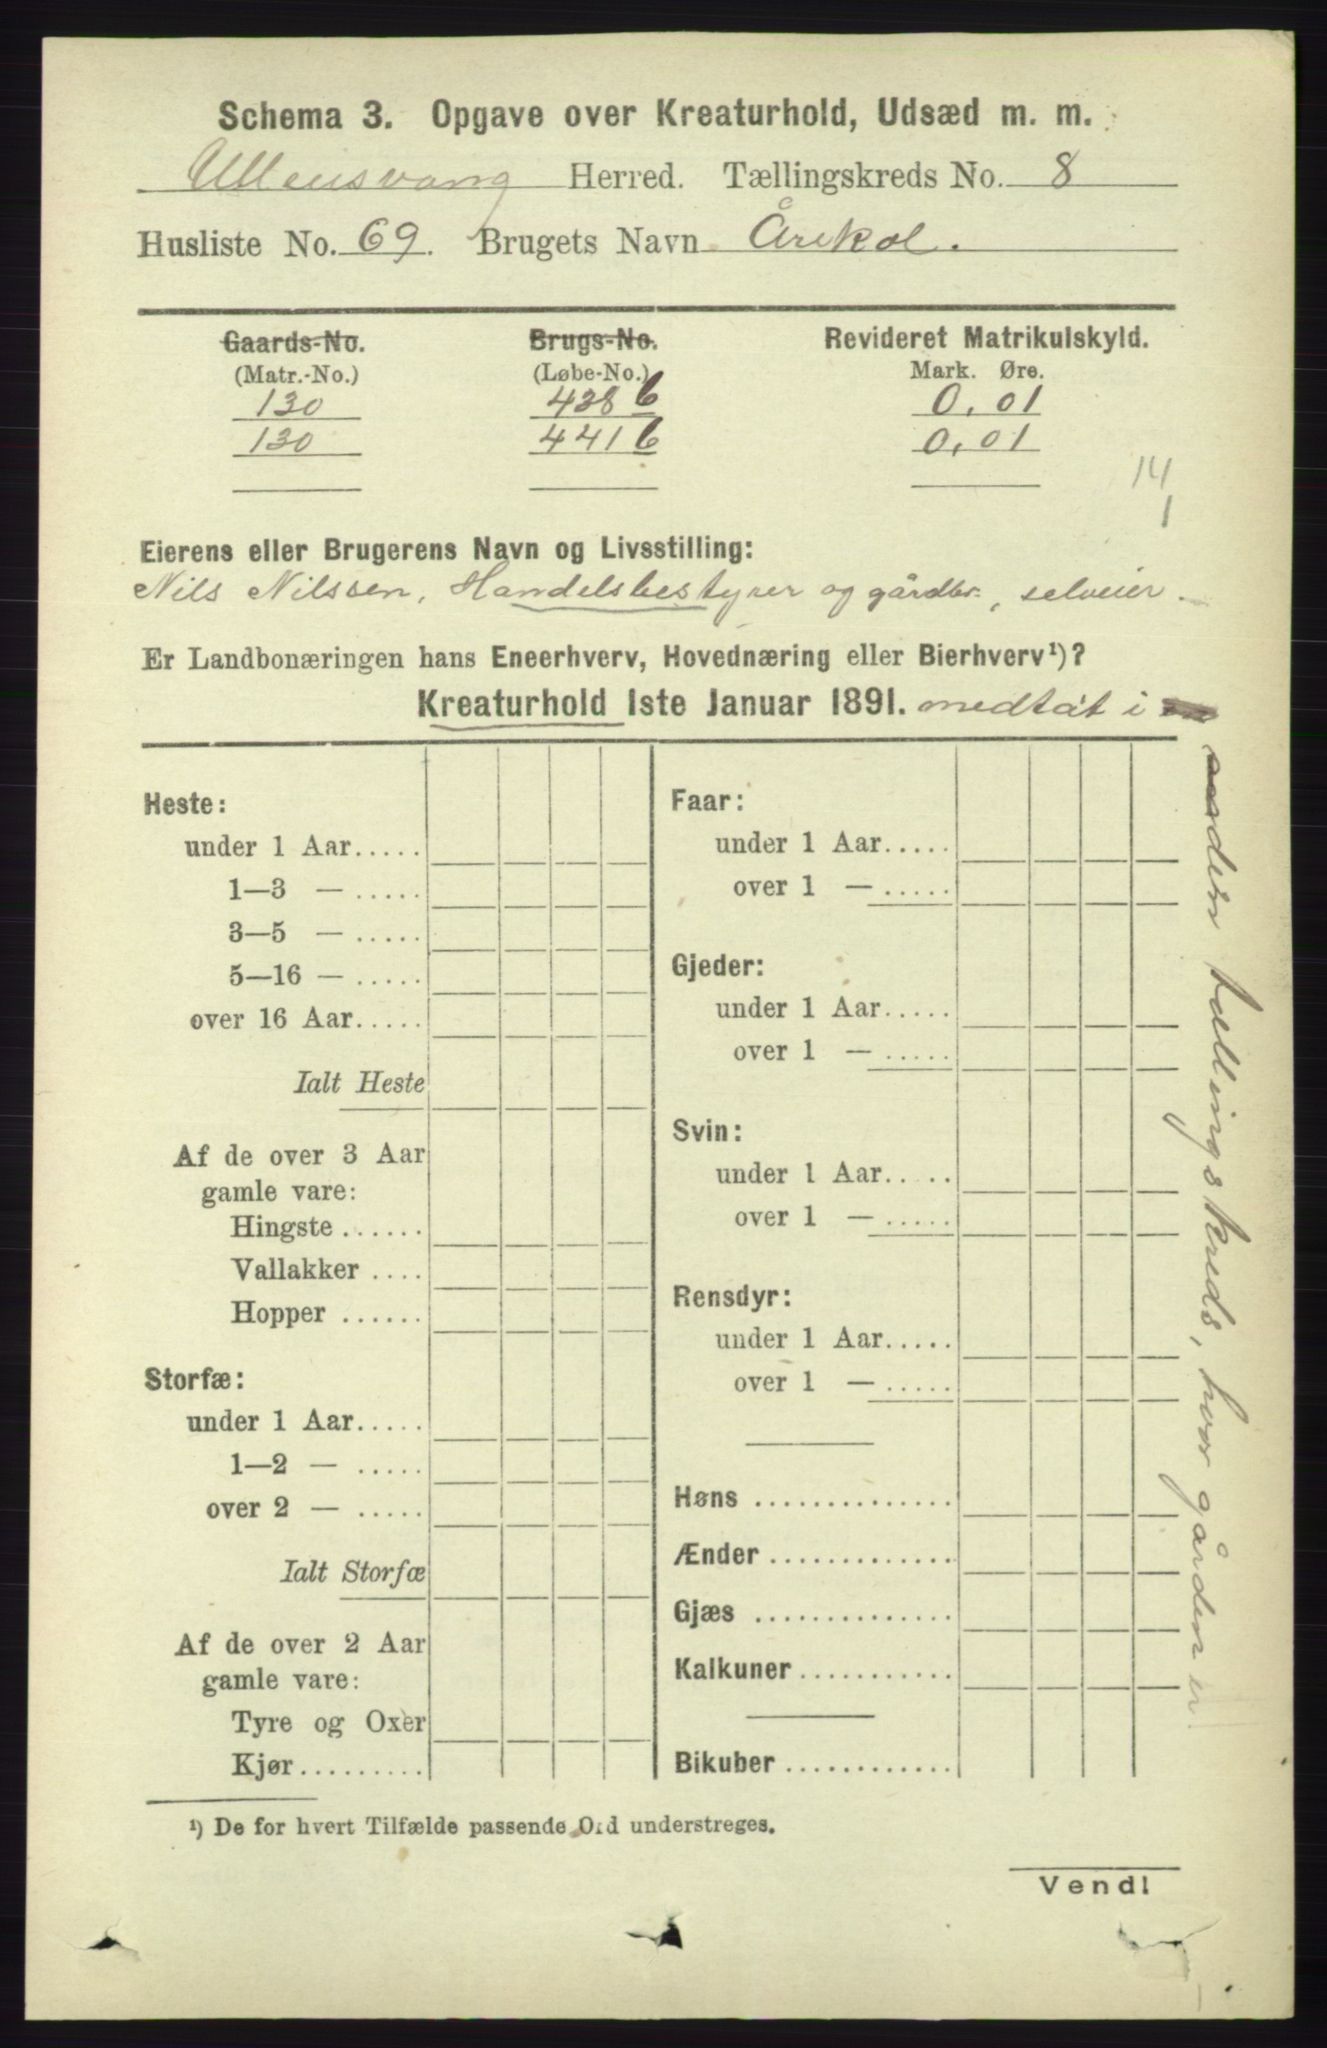 Schema 3. Opgave over Kreaturhold, Udsæd m. m.
Ullensvang Herred. Tællingskreds No. 8
Husliste No. 69. Brugets Navn Årekol.
Gaards-No. Brugs-No. Revideret Matrikulskyld.
(Matr.-No.) (Løbe-No.) Mark. Øre.
130 438 b 0,01
130 441 b 0,01
14
1
Eierens eller Brugerens Navn og Livsstilling:
Nils Nilssen, Handelsbestyrer og gårdbr., selveier.
Er Landbonæringen hans Eneerhverv, Hovednæring eller Bierhverv¹)?
Kreaturhold 1ste Januar 1891. medtat i
den tællingskreds, hvor gården er
Heste:
under 1 Aar.....
1—3 — .....
3—5 — .....
5—16 — .....
over 16 Aar.....
Ialt Heste
Af de over 3 Aar
gamle vare:
Hingste ......
Vallakker ....
Hopper ......
Storfæ:
under 1 Aar.....
1—2 — .....
over 2 — .....
Ialt Storfæ
Af de over 2 Aar
gamle vare:
Tyre og Oxer
Kjør.........
Faar:
under 1 Aar.....
over 1 — .....
Gjeder:
under 1 Aar.....
over 1 — .....
Svin:
under 1 Aar.....
over 1 — .....
Rensdyr:
under 1 Aar.....
over 1 — .....
Høns ..............
Ænder .............
Gjæs ..............
Kalkuner...........
Bikuber ............
¹) De for hvert Tilfælde passende Ord understreges.
Vend!